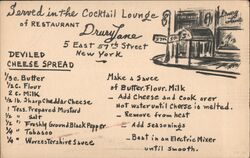 Served in the Cocktail Lounge
of RESTAURANT
Drury Lane
5 East 57th Street
New York
Drury Lane
DEVILED
CHEESE SPREAD
1/3 Oz. Butter
1/2 C. Flour
2 C. Milk
1/2 lb. Sharp Cheddar Cheese
1 Tea. Prepared Mustard
1/2 " Salt
1/4 " Freshly Ground Black Pepper
1/4 " Tabasco
1/4 " Worcestershire Sauce
Make a Sauce
of Butter, Flour, Milk
- Add Cheese and Cook over
Hot water until Cheese is melted.
- Remove from heat
- Add seasonings
- Beat in an Electric Mixer
until smooth.